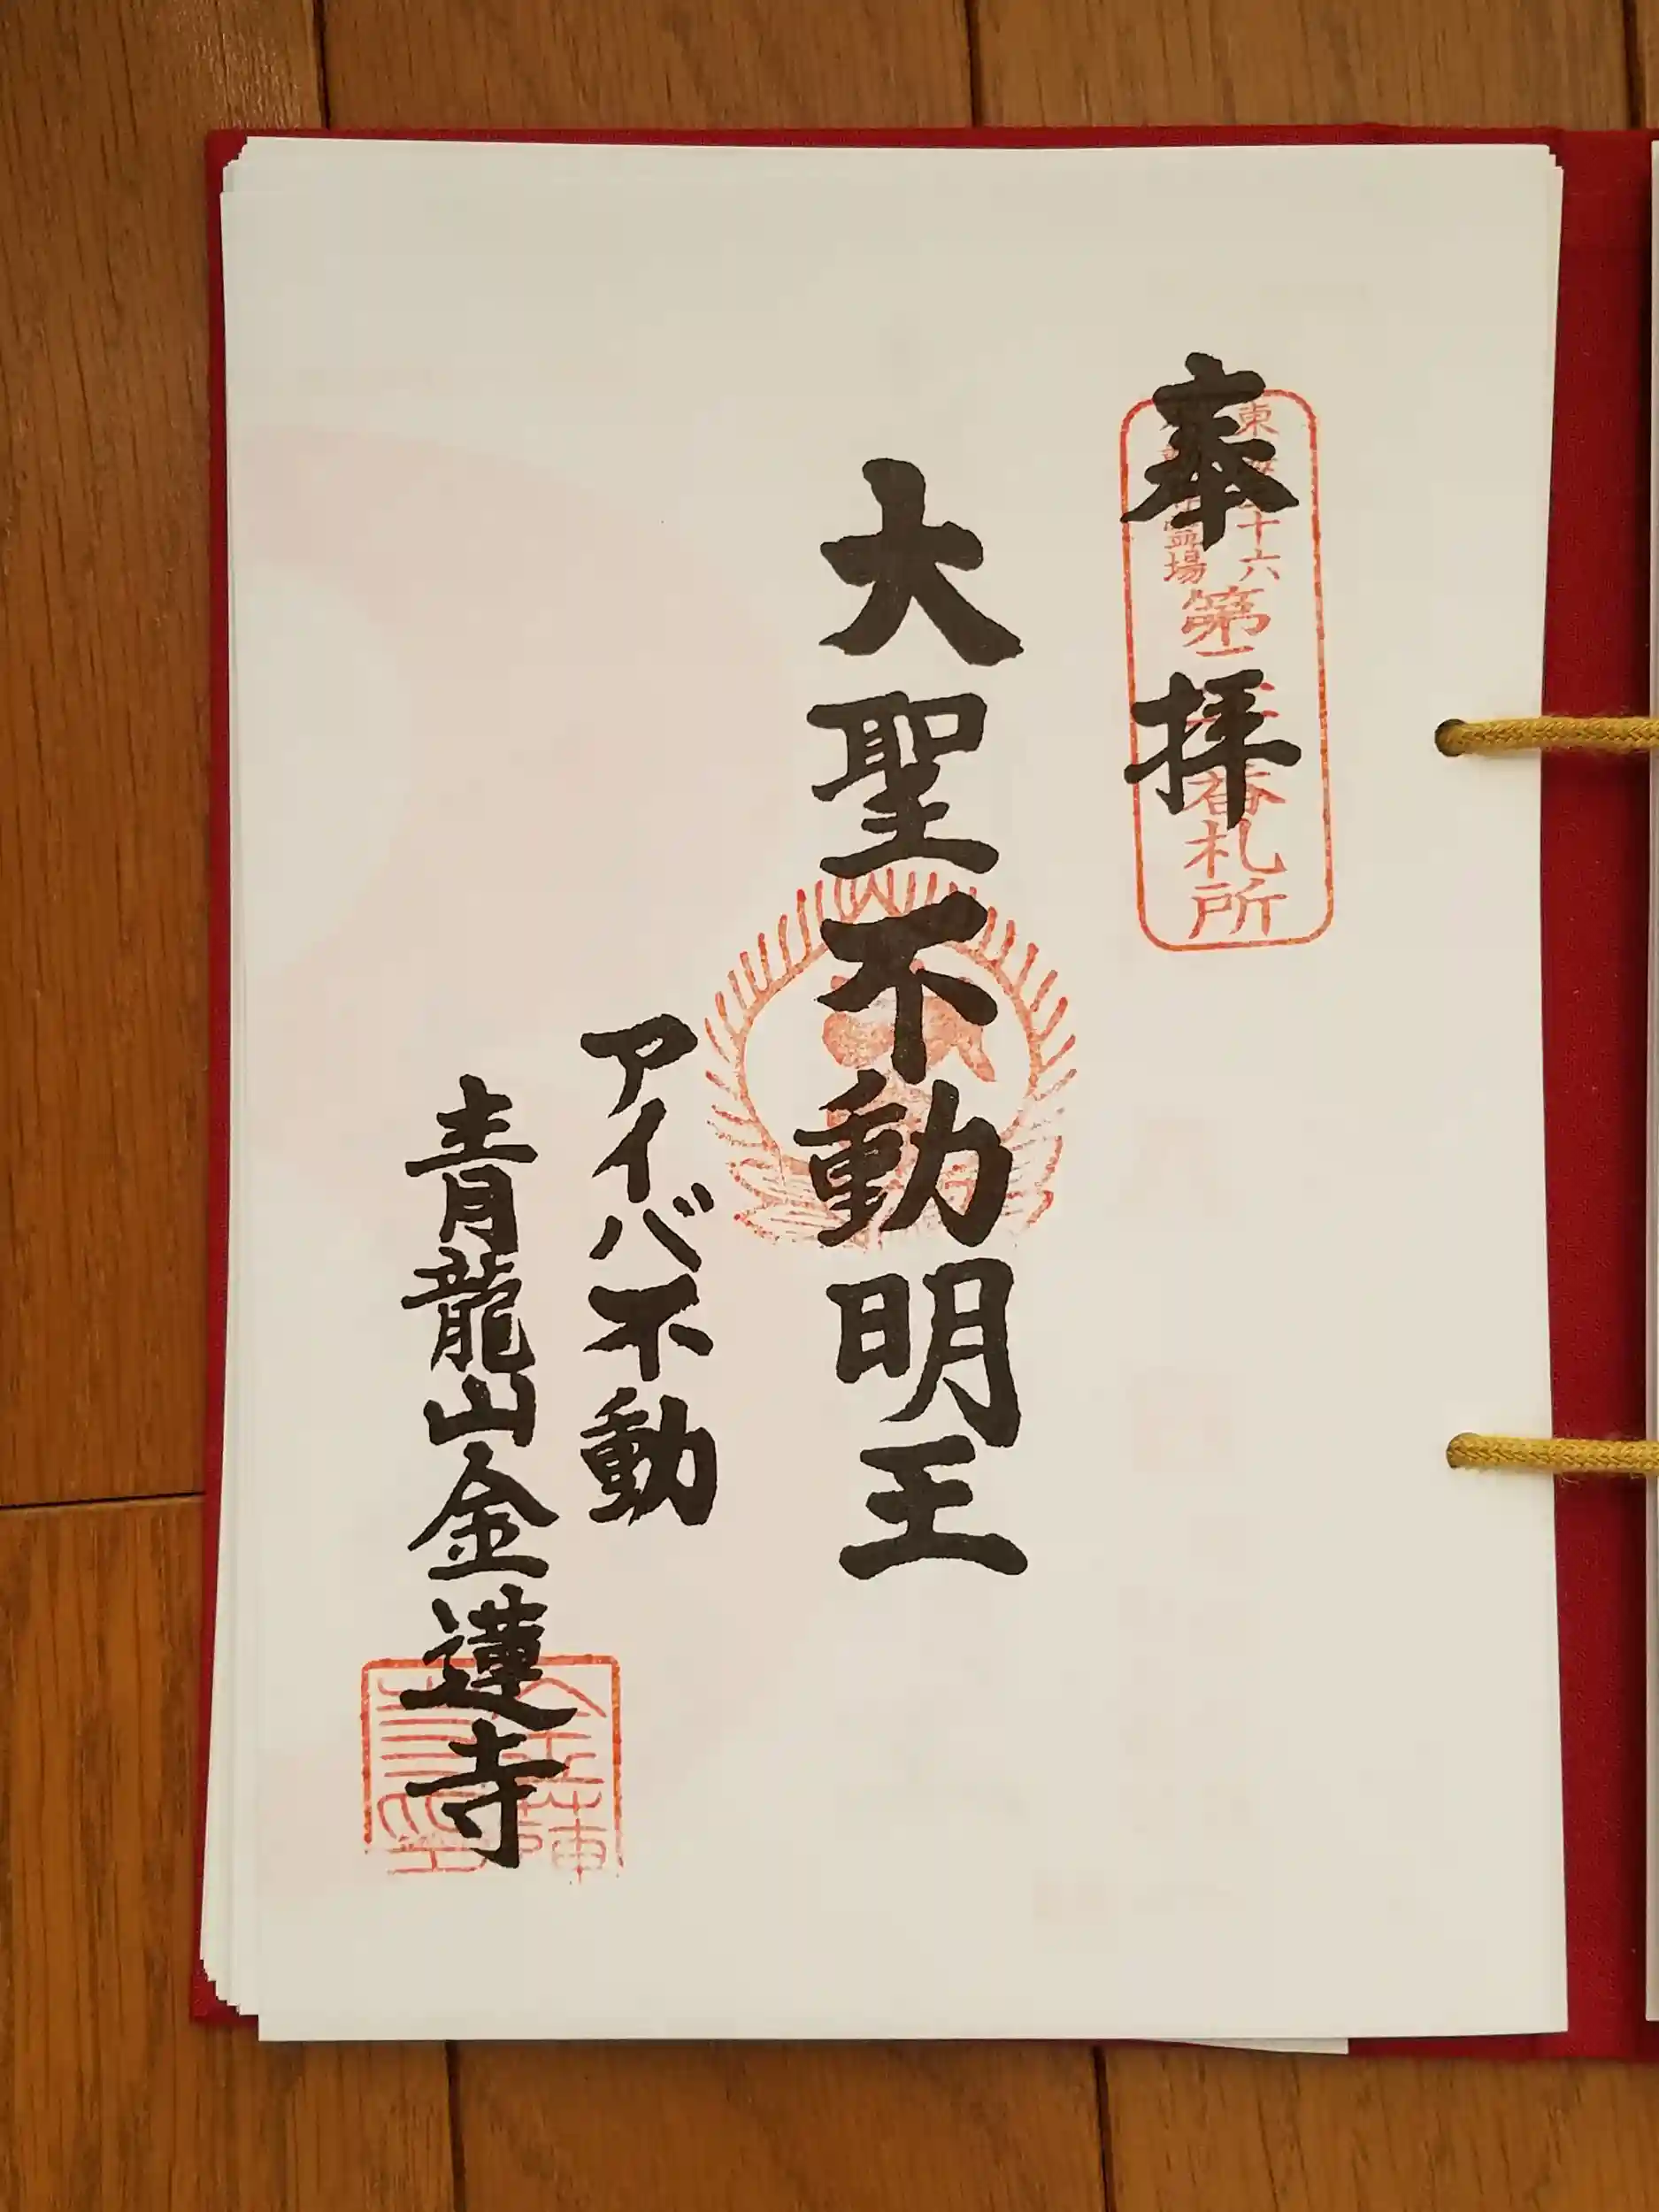 奉拝
東 十六
霊場
第 番札所
大聖不動明王
アイバ不動
青龍山金蓮寺